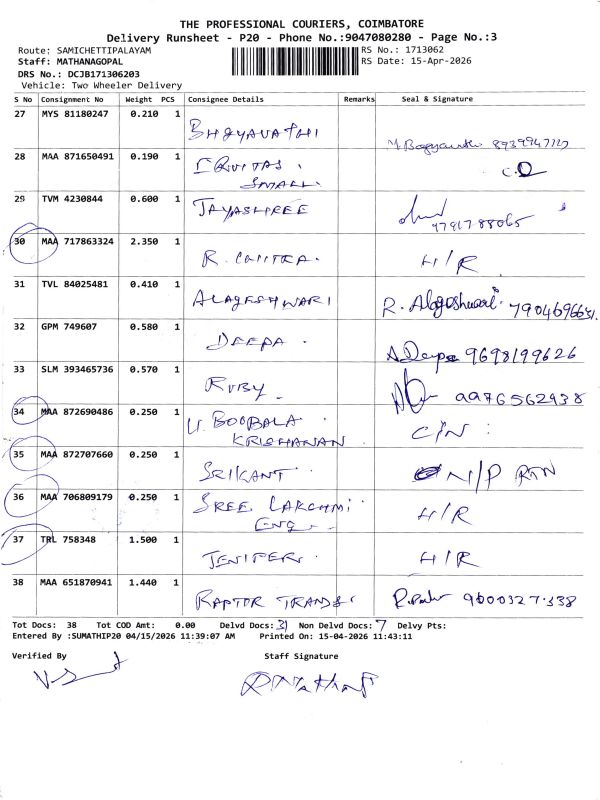 THE PROFESSIONAL COURIERS, COIMBATORE
Delivery Runsheet - P20 - Phone No.:9047080280 - Page No.:3
Route: SAMICHETTIPALAYAM RS No.: 1713062
Staff: MATHANAGOPAL RS Date: 15-Apr-2026
DRS No.: DCJB171306203
Vehicle: Two Wheeler Delivery
S No Consignment No Weight PCS Consignee Details Remarks Seal & Signature
27 MYS 81180247 0.210 1
28 MAA 871650491 0.190 1
SMALL.
29 TVM 4230844 0.600 1 JAYASHREE
9791788065
30 MAA 717863324 2.350 1
R. CHITRA. H/R
31 TVL 84025481 0.410 1
ALAGESHWARI R.
32 GPM 749607 0.580 1
DEEPA. 9698199626
33 SLM 393465736 0.570 1
RUBY. 9976562938
34 MAA 872690486 0.250 1 U. BOOBALA
KRISHANAN
35 MAA 872707660 0.250 1
SRIKANT N/P RTN
36 MAA 706809179 0.250 1 SREE LAKCHMI
ENG H/R
37 TRL 758348 1.500 1
JENIFER. H/R
38 MAA 651870941 1.440 1
RAPTOR TRANS 9600327338
Tot Docs: 38 Tot COD Amt: 0.00 Delvd Docs: 31 Non Delvd Docs: 7 Delvy Pts:
Entered By :SUMATHIP20 04/15/2026 11:39:07 AM Printed On: 15-04-2026 11:43:11
Verified By Staff Signature